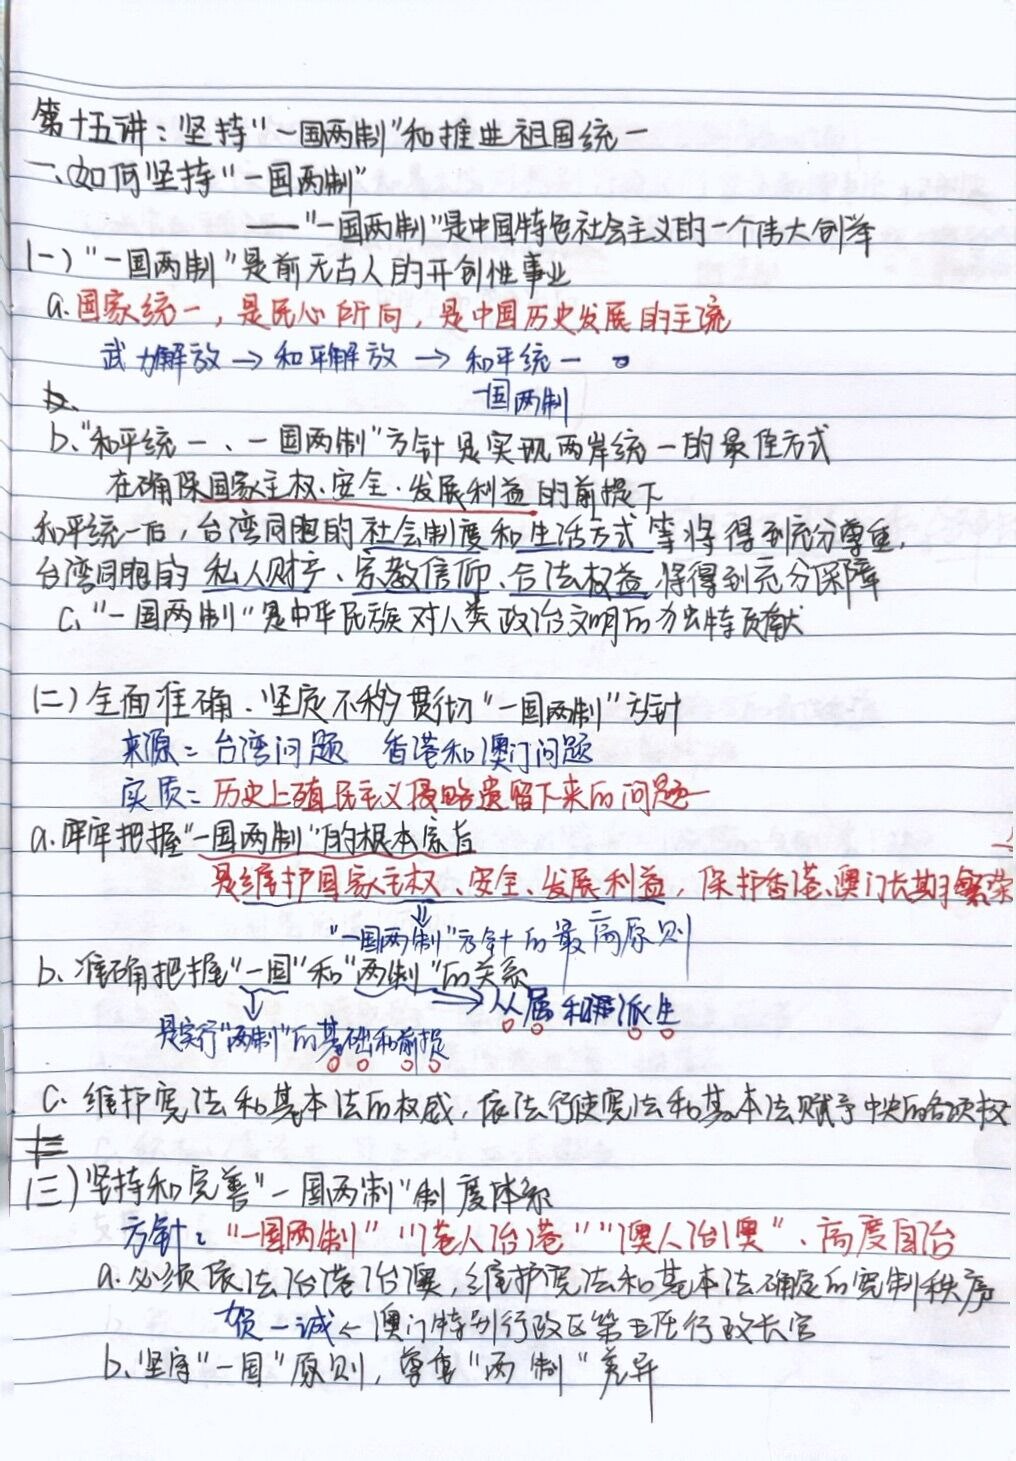 第十五讲：坚持"一国两制"和推进祖国统一
一、如何坚持"一国两制"
——"一国两制"是中国特色社会主义的一个伟大创举
(一)"一国两制"是前无古人的开创性事业
a.国家统一，是民心所向，是中国历史发展的主流
武力解放→和平解放→和平统一
一国两制
b、"和平统一、一国两制"方针是实现两岸统一的最佳方式
在确保国家主权、安全、发展利益的前提下
和平统一后，台湾同胞的社会制度和生活方式等将得到充分尊重，
台湾同胞的私人财产、宗教信仰、合法权益将得到充分保障
c、"一国两制"是中华民族对人类政治文明的独特贡献
(二)全面准确、坚定不移贯彻"一国两制"方针
来源：台湾问题 香港和澳门问题
实质：历史上殖民主义侵略遗留下来的问题
a.牢牢把握"一国两制"的根本宗旨
是维护国家主权、安全、发展利益，保护香港、澳门长期繁荣
"一国两制"方针的最高原则
b、准确把握"一国"和"两制"的关系
→从属和派生
是实行"两制"的基础和前提
c.维护宪法和基本法的权威，依法行使宪法和基本法赋予中央的各项权
(三)坚持和完善"一国两制"制度体系
方针："一国两制""港人治港""澳人治澳"、高度自治
a.必须依法治港治澳，维护宪法和基本法确定的宪制秩序
贺一诚←澳门特别行政区第五任行政长官
b、坚守"一国"原则，尊重"两制"差异